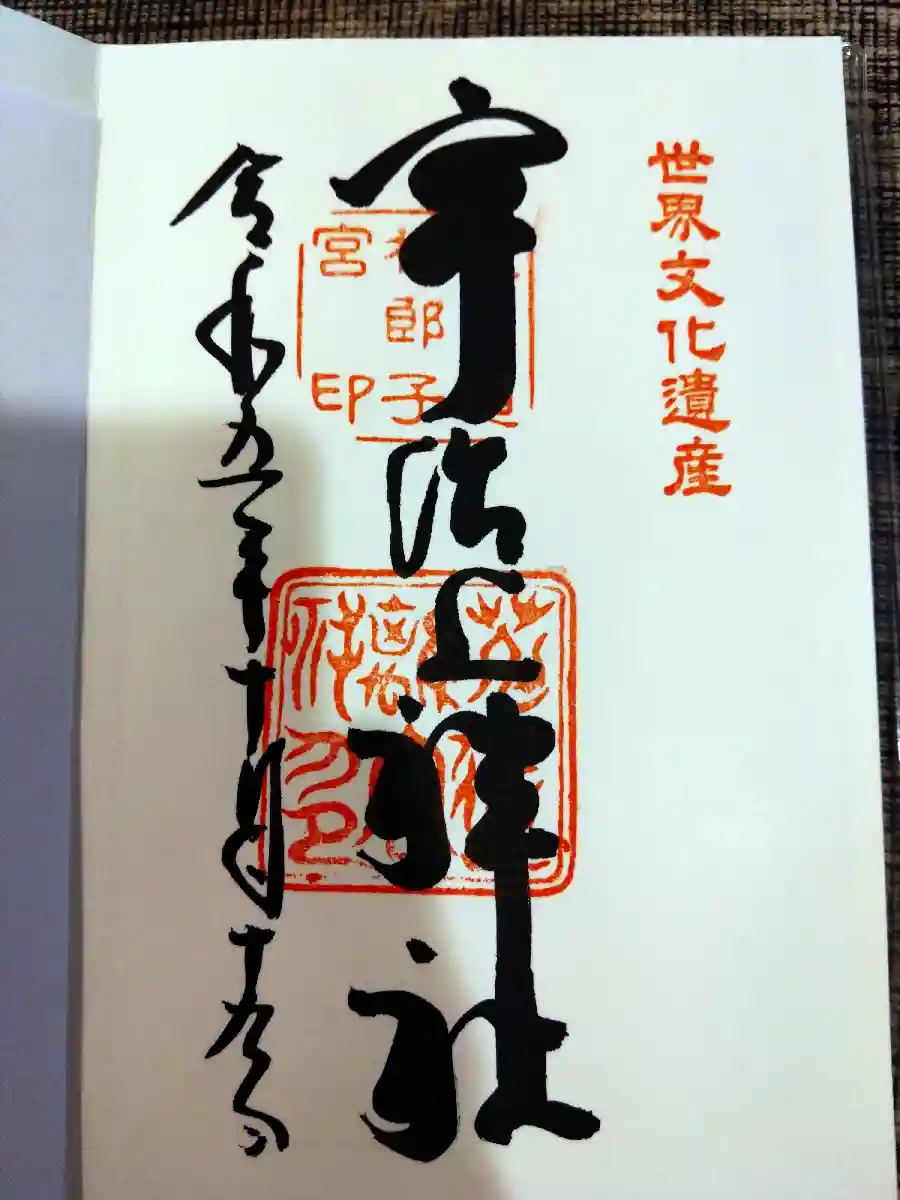 世界文化遺産
宇治上神社
郎子
宮印
令和五年十月十九日